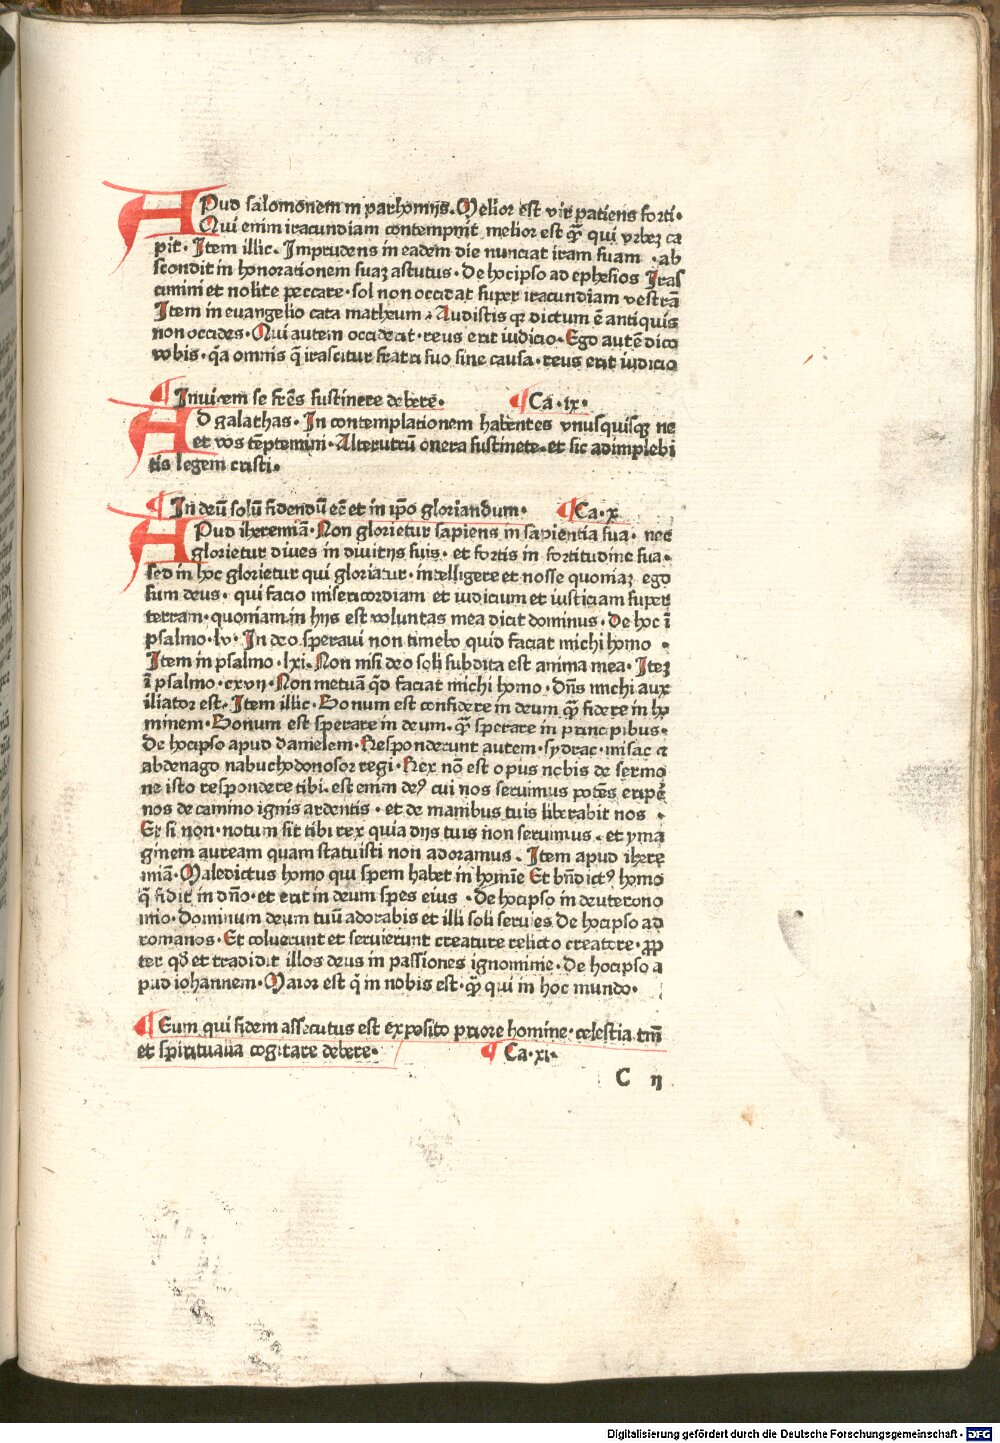 APud salomonem in parhomijs. Melior est vir patiens forti·
Qui enim iracundiam contempnit melior est qͣꝫ qui vrbeꝫ ca
pit· Item illic. Imprudens in eadem die nunciat iram suam ·ab
scondit in honorationem suaꝫ astutus· De hocipso ad ephesios Iras
cimini et nolite peccare· sol non occidat super iracundiam vestrā
Item in euangelio cata matheum. Audistis qꝫ dictum ē antiquis
non occides· Qui autem occiderit· reus erit iudicio· Ego autē dico
vobis· qa omnis q̄ irascitur fratri suo sine causa· reus erit iudicio
¶ Inuicem se frēs sustinere debere· ¶ Ca·ix·
AD galathas· In contemplationem habentes vnusquisqꝫ ne
et vos tēptemini· Alterutrū onera sustinete· et sic adimplebi
tis legem cristi·
¶ In deū solū fidendū eē et in ipō gloriandum· ¶ Ca·x
APud iheremiā· Non glorietur sapiens in sapientia sua· nec
glorietur diues in diuitijs suis· et fortis in fortitudine sua·
sed in hoc glorietur qui gloriatur· intelligere et nosse quoniaꝫ ego
sum deus· qui facio misericordiam et iudicium et iusticiam super
terram· quoniam in hijs est voluntas mea dicit dominus· De hoc ī
psalmo·lv· In deo speraui non timebo quid faciat michi homo ·
Item in psalmo·lxi. Non nisi deo soli subdita est anima mea· Iteꝫ
ī psalmo·cxvij· Non metuā qd̄ faciat michi homo· Dn̄s michi aux
iliator est. Item illic· Bonum est confidere in deum qͣꝫ fidere in ho
minem· Bonum est sperare in deum· qͣꝫ sperare in principibus·
De hocipso apud danielem· Responderunt autem· sydrac· misac ⁊
abdenago nabuchodonosor regi· Rex nō est opus nobis de sermo
ne isto respondere tibi· est enim deꝰ cui nos seruimus potēs eripē
nos de camino ignis ardentis· et de manibus tuis liberabit nos ·
Et si non· notum sit tibi rex quia dijs tuis non seruimus· et yma
ginem auream quam statuisti non adoramus . Item apud ihere
miā· Maledictus homo qui spem habet in homīe Et bn̄dictꝰ homo
q̄ fidit in dn̄o· et erit in deum spes eius · De hocipso in deuterono
mio· Dominum deum tuū adorabis et illi soli seruies De hocipso ad
romanos· Et coluerunt et seruierunt creature relicto creatore· ꝓp
ter qd̄ et tradidit illos deus in passiones ignominie· De hocipso a
pud iohannem· Maior est q̄ in nobis est· qͣꝫ qui in hoc mundo·
¶ Eum qui fidem assecutus est exposito priore homine· celestia tm̄
et spiritualia cogitare debere· ¶ Ca·xi·
C ij
Digitalisierung gefördert durch die Deutsche Forschungsgemeinschaft - DFG